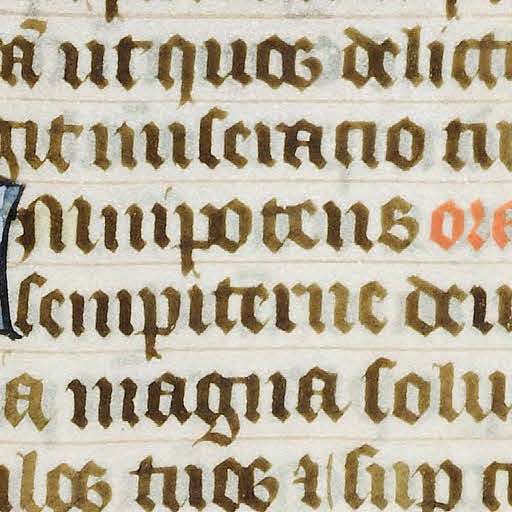 ā ut quos delict
git miseratio tu
mnipotens ore
sempiterne deu
a magna solu
ulos tuos ⁊ sup c